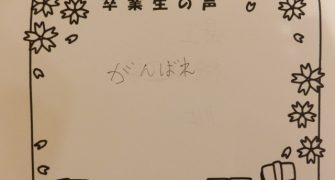 卒業生の声
がんばれ